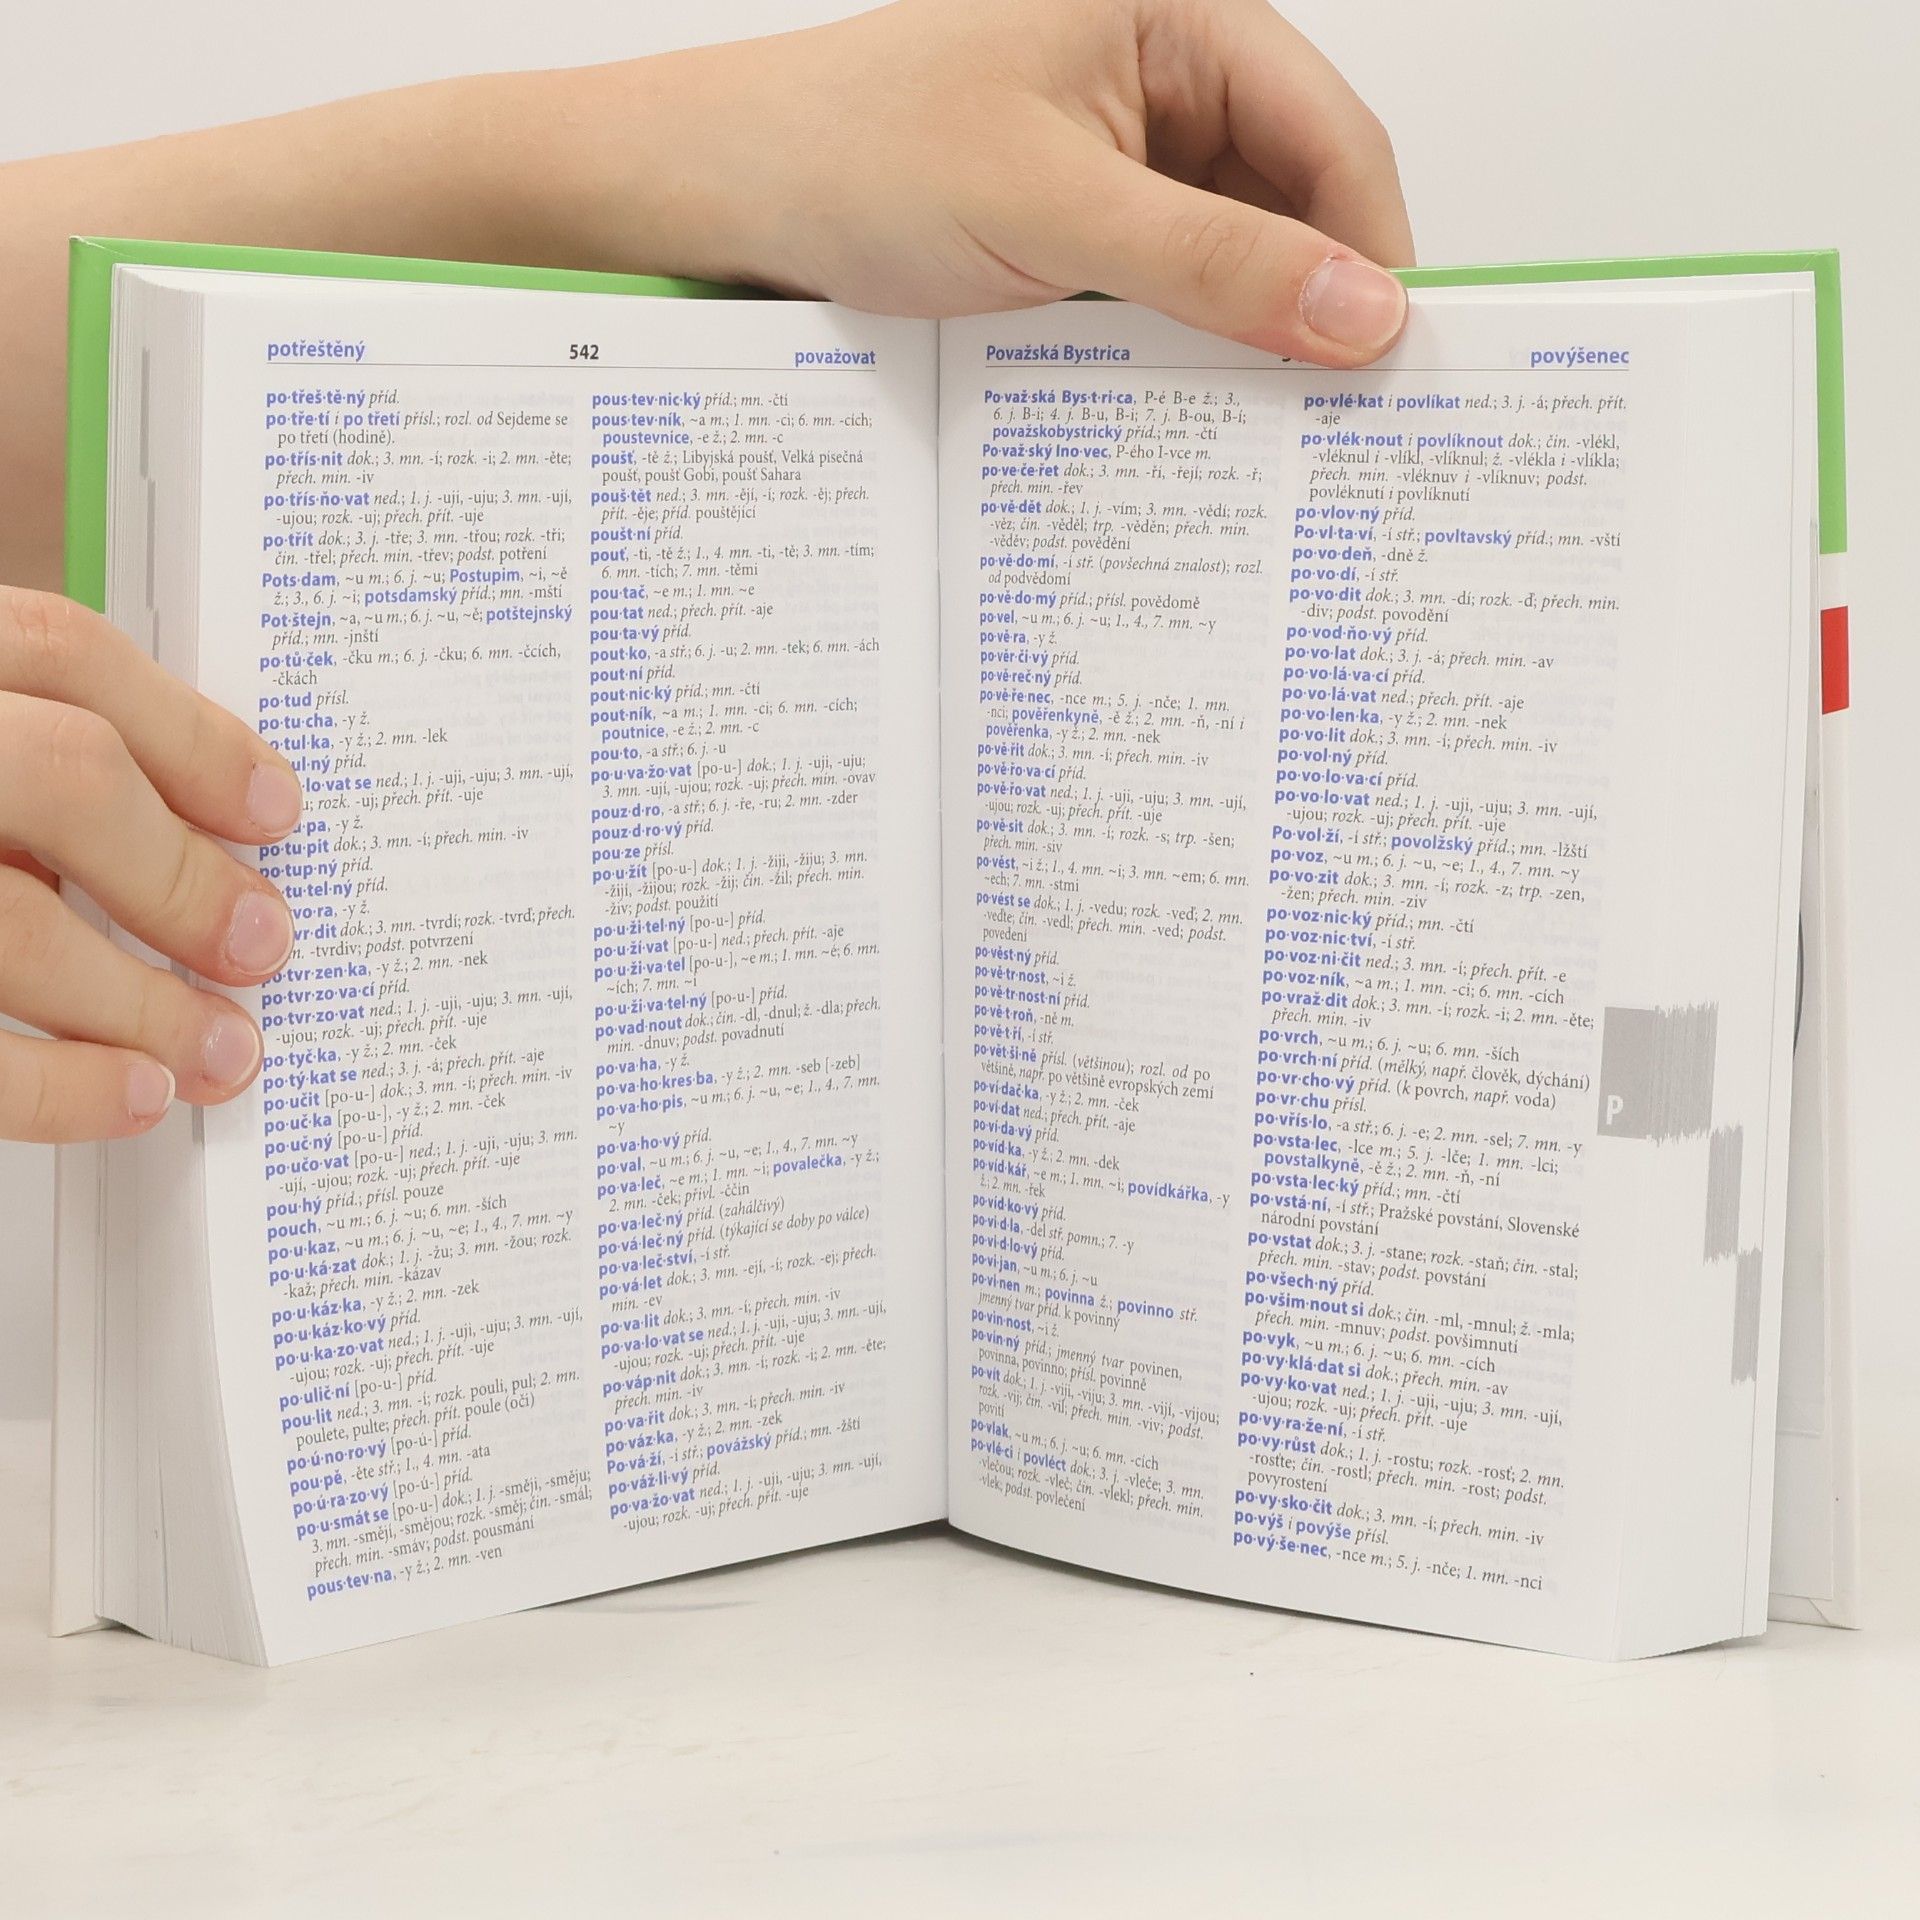 potřeštěný 542 považovat
po·třeš·tě·ný příd.
po·tře·tí i po třetí přísl.; rozl. od Sejdeme se
po třetí (hodině).
po·třís·nit dok.; 3. mn. -í; rozk. -i; 2. mn. -ěte;
přech. min. -iv
po·třís·ňo·vat ned.; 1. j. -uji, -uju; 3. mn. -ují,
-ujou; rozk. -uj; přech. přít. -uje
po·třít dok.; 3. j. -tře; 3. mn. -třou; rozk. -tři;
čin. -třel; přech. min. -třev; podst. potření
Pots·dam, ~u m.; 6. j. ~u; Postupim, ~i, ~ě
ž.; 3., 6. j. ~i; potsdamský příd.; mn. -mští
Pot·štejn, ~a, ~u m.; 6. j. ~u, ~ě; potštejnský
příd.; mn. -jnští
po·tů·ček, -čku m.; 6. j. -čku; 6. mn. -čcích,
-čkách
po·tud přísl.
po·tu·cha, -y ž.
tul·ka, -y ž.; 2. mn. -lek
ul·ný příd.
lo·vat se ned.; 1. j. -uji, -uju; 3. mn. -ují,
rozk. -uj; přech. přít. -uje
pa, -y ž.
po·tu·pit dok.; 3. mn. -í; přech. min. -iv
po·tup·ný příd.
tu·tel·ný příd.
vo·ra, -y ž.
vr·dit dok.; 3. mn. -tvrdí; rozk. -tvrď; přech.
-tvrdiv; podst. potvrzení
po·tvr·zen·ka, -y ž.; 2. mn. -nek
po·tvr·zo·va·cí příd.
po·tvr·zo·vat ned.; 1. j. -uji, -uju; 3. mn. -ují,
-ujou; rozk. -uj; přech. přít. -uje
po·tyč·ka, -y ž.; 2. mn. -ček
po·tý·kat se ned.; 3. j. -á; přech. přít. -aje
po·učit [po-u-] dok.; 3. mn. -í; přech. min. -iv
po·uč·ka [po-u-], -y ž.; 2. mn. -ček
po·uč·ný [po-u-] příd.
po·učo·vat [po-u-] ned.; 1. j. -uji, -uju; 3. mn.
-ují, -ujou; rozk. -uj; přech. přít. -uje
pou·hý příd.; přísl. pouze
pouch, ~u m.; 6. j. ~u; 6. mn. -ších
po·u·kaz, ~u m.; 6. j. ~u, ~e; 1., 4., 7. mn. ~y
po·u·ká·zat dok.; 1. j. -žu; 3. mn. -žou; rozk.
-kaž; přech. min. -kázav
po·u·káz·ka, -y ž.; 2. mn. -zek
po·u·káz·ko·vý příd.
po·u·ka·zo·vat ned.; 1. j. -uji, -uju; 3. mn. -ují,
-ujou; rozk. -uj; přech. přít. -uje
po·ulič·ní [po-u-] příd.
pou·lit ned.; 3. mn. -í; rozk. pouli, pul; 2. mn.
poulete, pulte; přech. přít. poule (oči)
po·ú·no·ro·vý [po-ú-] příd.
pou·pě, -ěte stř.; 1., 4. mn. -ata
po·ú·ra·zo·vý [po-ú-] příd.
po·u·smát se [po-u-] dok.; 1. j. -směji, -směju;
3. mn. -smějí, -smějou; rozk. -směj; čin. -smál;
přech. min. -smáv; podst. pousmání
pous·tev·na, -y ž.; 2. mn. -ven
pous·tev·nic·ký příd.; mn. -čtí
pous·tev·ník, ~a m.; 1. mn. -ci; 6. mn. -cích;
poustevnice, -e ž.; 2. mn. -c
poušť, -tě ž.; Libyjská poušť, Velká písečná
poušť, poušť Gobi, poušť Sahara
pouš·tět ned.; 3. mn. -ějí, -í; rozk. -ěj; přech.
přít. -ěje; příd. pouštějící
poušt·ní příd.
pouť, -ti, -tě ž.; 1., 4. mn. -ti, -tě; 3. mn. -tím;
6. mn. -tích; 7. mn. -těmi
pou·tač, ~e m.; 1. mn. ~e
pou·tat ned.; přech. přít. -aje
pou·ta·vý příd.
pout·ko, -a stř.; 6. j. -u; 2. mn. -tek; 6. mn. -ách
pout·ní příd.
pout·nic·ký příd.; mn. -čtí
pout·ník, ~a m.; 1. mn. -ci; 6. mn. -cích;
poutnice, -e ž.; 2. mn. -c
pou·to, -a stř.; 6. j. -u
po·u·va·žo·vat [po-u-] dok.; 1. j. -uji, -uju;
3. mn. -ují, -ujou; rozk. -uj; přech. min. -ovav
pouz·d·ro, -a stř.; 6. j. -ře, -ru; 2. mn. -zder
pouz·d·ro·vý příd.
pou·ze přísl.
po·u·žít [po-u-] dok.; 1. j. -žiji, -žiju; 3. mn.
-žijí, -žijou; rozk. -žij; čin. -žil; přech. min.
-živ; podst. použití
po·u·ži·tel·ný [po-u-] příd.
po·u·ží·vat [po-u-] ned.; přech. přít. -aje
po·u·ži·va·tel [po-u-], ~e m.; 1. mn. ~é; 6. mn.
~ích; 7. mn. ~i
po·u·ži·va·tel·ný [po-u-] příd.
po·vad·nout dok.; čin. -dl, -dnul; ž. -dla; přech.
min. -dnuv; podst. povadnutí
po·va·ha, -y ž.
po·va·ho·kres·ba, -y ž.; 2. mn. -seb [-zeb]
po·va·ho·pis, ~u m.; 6. j. ~u, ~e; 1., 4., 7. mn.
~y
po·va·ho·vý příd.
po·val, ~u m.; 6. j. ~u, ~e; 1., 4., 7. mn. ~y
po·va·leč, ~e m.; 1. mn. ~i; povalečka, -y ž.;
2. mn. -ček; přivl. -ččin
po·va·leč·ný příd. (zahálčivý)
po·vá·leč·ný příd. (týkající se doby po válce)
po·va·leč·ství, -í stř.
po·vá·let dok.; 3. mn. -ejí, -í; rozk. -ej; přech.
min. -ev
po·va·lit dok.; 3. mn. -í; přech. min. -iv
po·va·lo·vat se ned.; 1. j. -uji, -uju; 3. mn. -ují,
-ujou; rozk. -uj; přech. přít. -uje
po·váp·nit dok.; 3. mn. -í; rozk. -i; 2. mn. -ěte;
přech. min. -iv
po·va·řit dok.; 3. mn. -í; přech. min. -iv
po·váz·ka, -y ž.; 2. mn. -zek
Po·vá·ží, -í stř.; povážský příd.; mn. -žští
po·váž·li·vý příd.
po·va·žo·vat ned.; 1. j. -uji, -uju; 3. mn. -ují,
-ujou; rozk. -uj; přech. přít. -uje
Považská Bystrica povýšenec
Po·važ·ská Bys·t·ri·ca, P-é B-e ž.; 3.,
6. j. B-i; 4. j. B-u, B-i; 7. j. B-ou, B-í;
považskobystrický příd.; mn. -čtí
Po·važ·ský Ino·vec, P-ého I-vce m.
po·ve·če·řet dok.; 3. mn. -ří, -řejí; rozk. -ř;
přech. min. -řev
po·vě·dět dok.; 1. j. -vím; 3. mn. -vědí; rozk.
-věz; čin. -věděl; trp. -věděn; přech. min.
-věděv; podst. povědění
po·vě·do·mí, -í stř. (povšechná znalost); rozl.
od podvědomí
po·vě·do·mý příd.; přísl. povědomě
po·vel, ~u m.; 6. j. ~u; 1., 4., 7. mn. ~y
po·vě·ra, -y ž.
po·věr·či·vý příd.
po·vě·reč·ný příd.
po·vě·ře·nec, -nce m.; 5. j. -nče; 1. mn.
-nci; pověřenkyně, -ě ž.; 2. mn. -ň, -ní i
pověřenka, -y ž.; 2. mn. -nek
po·vě·řit dok.; 3. mn. -í; přech. min. -iv
po·vě·řo·va·cí příd.
po·vě·řo·vat ned.; 1. j. -uji, -uju; 3. mn. -ují,
-ujou; rozk. -uj; přech. přít. -uje
po·vě·sit dok.; 3. mn. -í; rozk. -s; trp. -šen;
přech. min. -siv
po·věst, ~i ž.; 1., 4. mn. ~i; 3. mn. ~em; 6. mn.
~ech; 7. mn. -stmi
po·vést se dok.; 1. j. -vedu; rozk. -veď; 2. mn.
-veďte; čin. -vedl; přech. min. -ved; podst.
povedení
po·věst·ný příd.
po·vě·tr·nost, ~i ž.
po·vě·tr·nost·ní příd.
po·vět·roň, -ně m.
po·vět·ří, -í stř.
po·vět·ši·ně přísl. (většinou); rozl. od po
většině, např. po většině evropských zemí
po·ví·dač·ka, -y ž.; 2. mn. -ček
po·ví·dat ned.; přech. přít. -aje
po·ví·da·vý příd.
po·víd·ka, -y ž.; 2. mn. -dek
po·víd·kář, ~e m.; 1. mn. ~i; povídkářka, -y
ž.; 2. mn. -řek
po·víd·ko·vý příd.
po·vi·d·la, -del stř. pomn.; 7. -y
po·vi·d·lo·vý příd.
po·vi·jan, ~u m.; 6. j. ~u
po·vi·nen m.; povinna ž.; povinno stř.
jmenný tvar příd. k povinný
po·vin·nost, ~i ž.
po·vin·ný příd.; jmenný tvar povinen,
povinna, povinno; přísl. povinně
po·vít dok.; 1. j. -viji, -viju; 3. mn. -vijí, -vijou;
rozk. -vij; čin. -vil; přech. min. -viv; podst.
povití
po·vlak, ~u m.; 6. j. ~u; 6. mn. -cích
po·vlé·ci i povléct dok.; 3. j. -vleče; 3. mn.
-vlečou; rozk. -vleč; čin. -vlekl; přech. min.
-vlek; podst. povlečení
po·vlé·kat i povlíkat ned.; 3. j. -á; přech. přít.
-aje
po·vlék·nout i povlíknout dok.; čin. -vlékl,
-vléknul i -vlíkl, -vlíknul; ž. -vlékla i -vlíkla;
přech. min. -vléknuv i -vlíknuv; podst.
povléknutí i povlíknutí
po·vlov·ný příd.
Po·vl·ta·ví, -í stř.; povltavský příd.; mn. -vští
po·vo·deň, -dně ž.
po·vo·dí, -í stř.
po·vo·dit dok.; 3. mn. -dí; rozk. -ď; přech. min.
-div; podst. povodění
po·vod·ňo·vý příd.
po·vo·lat dok.; 3. j. -á; přech. min. -av
po·vo·lá·va·cí příd.
po·vo·lá·vat ned.; přech. přít. -aje
po·vo·len·ka, -y ž.; 2. mn. -nek
po·vo·lit dok.; 3. mn. -í; přech. min. -iv
po·vol·ný příd.
po·vo·lo·va·cí příd.
po·vo·lo·vat ned.; 1. j. -uji, -uju; 3. mn. -ují,
-ujou; rozk. -uj; přech. přít. -uje
Po·vol·ží, -í stř.; povolžský příd.; mn. -lžští
po·voz, ~u m.; 6. j. ~u, ~e; 1., 4., 7. mn. ~y
po·vo·zit dok.; 3. mn. -í; rozk. -z; trp. -zen,
-žen; přech. min. -ziv
po·voz·nic·ký příd.; mn. -čtí
po·voz·nic·tví, -í stř.
po·voz·ni·čit ned.; 3. mn. -í; přech. přít. -e
po·voz·ník, ~a m.; 1. mn. -ci; 6. mn. -cích
po·vraž·dit dok.; 3. mn. -í; rozk. -i; 2. mn. -ěte;
přech. min. -iv
po·vrch, ~u m.; 6. j. ~u; 6. mn. -ších
po·vrch·ní příd. (mělký, např. člověk, dýchání)
po·vr·cho·vý příd. (k povrch, např. voda)
po·vr·chu přísl.
po·vřís·lo, -a stř.; 6. j. -e; 2. mn. -sel; 7. mn. -y
po·vsta·lec, -lce m.; 5. j. -lče; 1. mn. -lci;
povstalkyně, -ě ž.; 2. mn. -ň, -ní
po·vsta·lec·ký příd.; mn. -čtí
po·vstá·ní, -í stř.; Pražské povstání, Slovenské
národní povstání
po·vstat dok.; 3. j. -stane; rozk. -staň; čin. -stal;
přech. min. -stav; podst. povstání
po·všech·ný příd.
po·všim·nout si dok.; čin. -ml, -mnul; ž. -mla;
přech. min. -mnuv; podst. povšimnutí
po·vyk, ~u m.; 6. j. ~u; 6. mn. -cích
po·vy·klá·dat si dok.; přech. min. -av
po·vy·ko·vat ned.; 1. j. -uji, -uju; 3. mn. -ují,
-ujou; rozk. -uj; přech. přít. -uje
po·vy·ra·že·ní, -í stř.
po·vy·růst dok.; 1. j. -rostu; rozk. -rosť; 2. mn.
-rosťte; čin. -rostl; přech. min. -rost; podst.
povyrostení
po·vy·sko·čit dok.; 3. mn. -í; přech. min. -iv
po·výš i povýše přísl.
po·vý·še·nec, -nce m.; 5. j. -nče; 1. mn. -nci
P